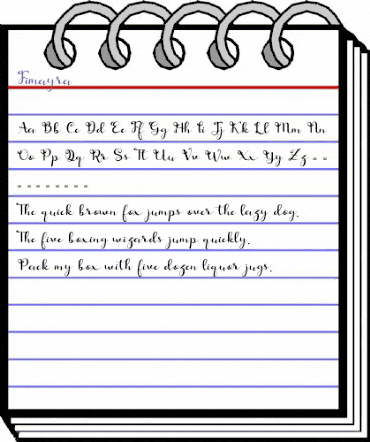 Fimayra
Aa Bb Cc Dd Ee Ff Gg Hh Ii Jj Kk Ll Mm Nn
Oo Pp Qq Rr Ss Tt Uu Vv Ww Xx Yy Zz - -
- - - - - - - -
The quick brown fox jumps over the lazy dog.
The five boxing wizards jump quickly.
Pack my box with five dozen liquor jugs.